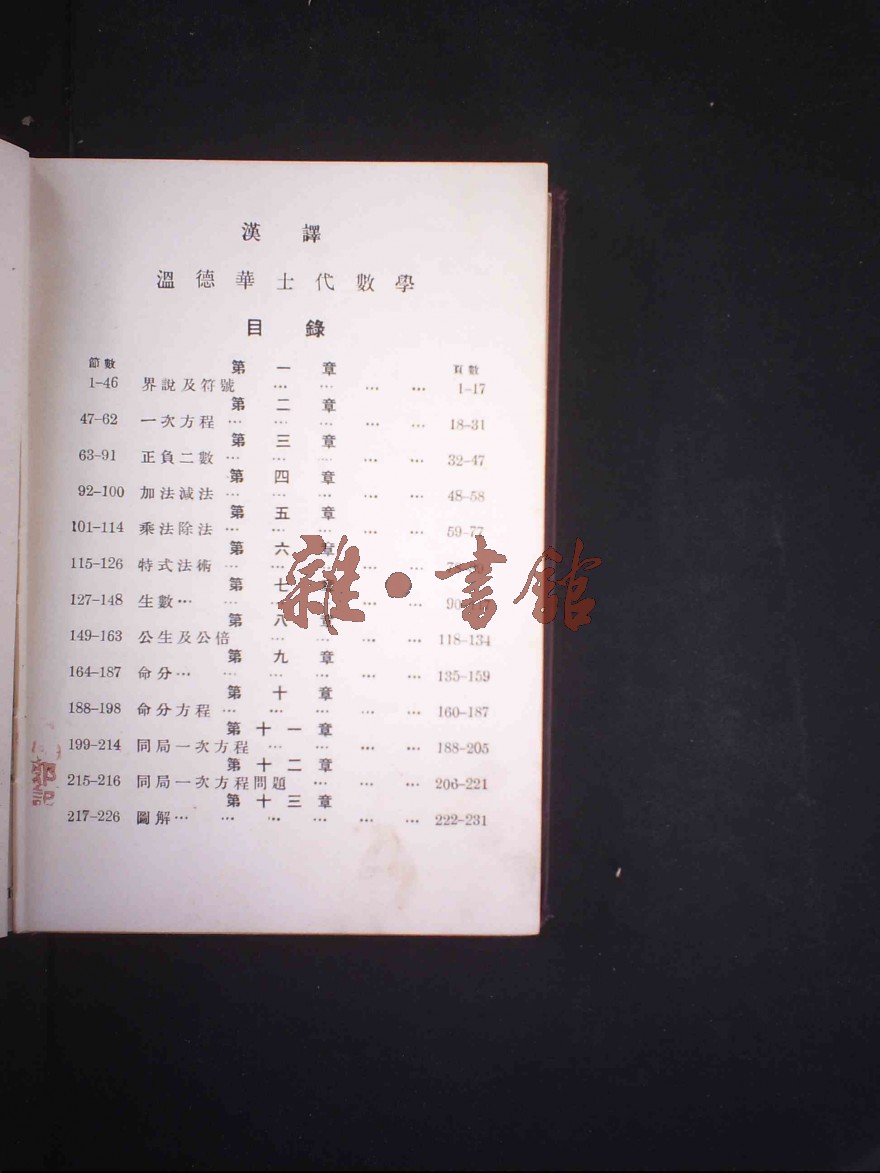 漢譯
溫德華士代數學
目錄
節數 第一章 頁數
1-46 界說及符號 … … … … 1-17
第二章
47-62 一次方程 … … … … 18-31
第三章
63-91 正負二數 … … … … 32-47
第四章
92-100 加法減法 … … … … 48-58
第五章
101-114 乘法除法 … … … … 59-77
第六章
115-126 特式法術 … … …
第七章
127-148 生數 … … … …
第八章
149-163 公生及公倍 … … … … 118-134
第九章
164-187 命分 … … … … … 135-159
第十章
188-198 命分方程 … … … … … 160-187
第十一章
199-214 同局一次方程 … … … … 188-205
第十二章
215-216 同局一次方程問題 … … … 206-221
第十三章
217-226 圖解 … … … … … … 222-231
雜·書館